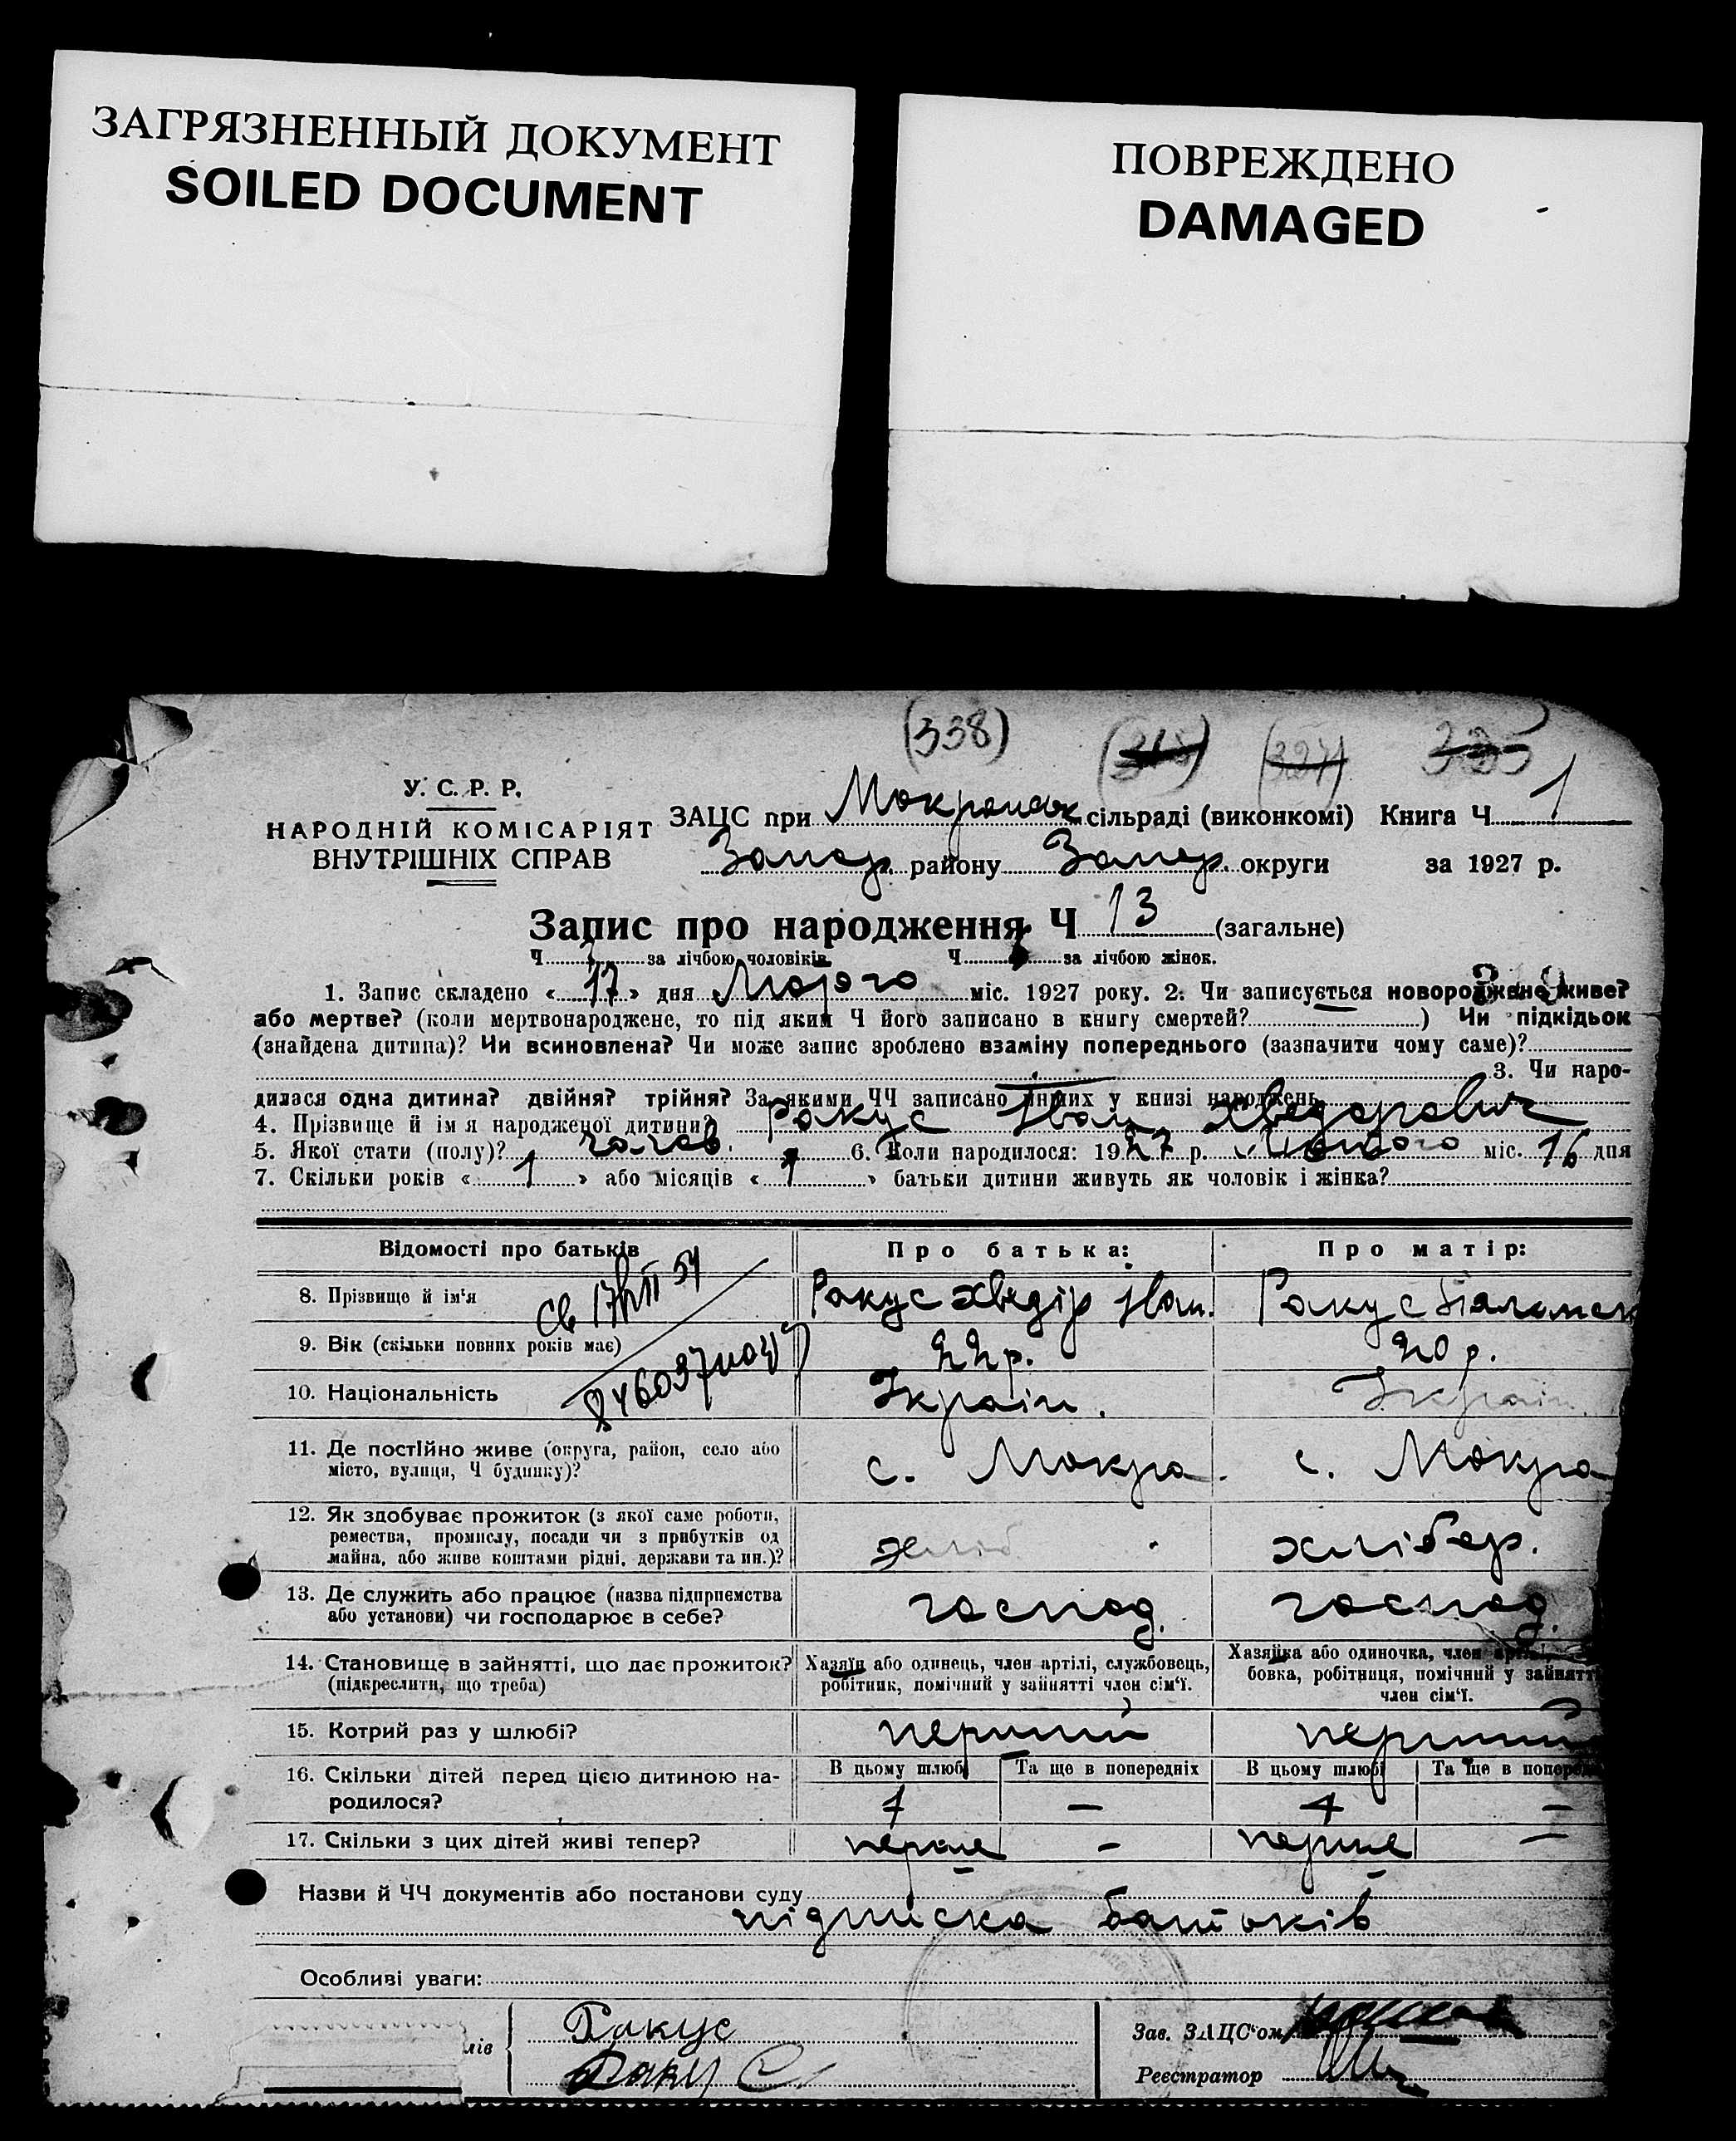 ЗАГРЯЗНЕННЫЙ ДОКУМЕНТ
SOILED DOCUMENT
ПОВРЕЖДЕНО
DAMAGED
(338)
У. С. Р. Р.
НАРОДНІЙ КОМІСАРІЯТ
ВНУТРІШНІХ СПРАВ
ЗАЦС при сільраді (виконкомі) Книга Ч 1
Запор. району Запор. округи за 1927 р.
Запис про народження Ч 13 (загальне)
Ч за лічбою чоловіків Ч за лічбою жінок.
1. Запис складено « 17 » дня міс. 1927 року. 2. Чи записується новороджене живе?
або мертве? (коли мертвонароджене, то під яким Ч його записано в книгу смертей? ) Чи підкідьок
(знайдена дитина)? Чи всиновлена? Чи може запис зроблено взаміну попереднього (зазначити чому саме)?
3. Чи наро-
дилася одна дитина? двійня? трійня? За якими ЧЧ записано інших у книзі народжень
4. Прізвище й ім я народженої дитини? Ракус Іван Хведорович
5. Якої стати (полу)? чолов. 6. Коли народилося: 1927 р. Лютого міс. 16 дня
7. Скільки років « 1 » або місяців « » батьки дитини живуть як чоловік і жінка?
Відомості про батьків
Про батька:
Про матір:
8. Прізвище й ім'я
Ракус Хведір Іван.
Ракус
9. Вік (скільки повних років має)
22 р.
20 р.
10. Національність
Україн.
Україн.
11. Де постійно живе (округа, район, село або
місто, вулиця, Ч будинку)?
с. Мокра
с. Мокра
12. Як здобуває прожиток (з якої саме роботи,
ремества, промислу, посади чи з прибутків од
майна, або живе коштами рідні, держави та ин.)?
хліб
хлібор.
13. Де служить або працює (назва підприємства
або установи) чи господарює в себе?
господ.
господ.
14. Становище в зайнятті, що дає прожиток?
(підкреслити, що треба)
Хазяїн або одинець, член артілі, службовець,
робітник, помічний у зайнятті член сім'ї.
Хазяйка або одиночка, член артілі,
бовка, робітниця, помічний у зайнятт
член сім'ї.
15. Котрий раз у шлюбі?
перший
перший
16. Скільки дітей перед цією дитиною на-
родилося?
В цьому шлюбі
Та ще в попередніх
В цьому шлюбі
Та ще в попередн
1 —
1 —
17. Скільки з цих дітей живі тепер?
перше —
перше —
Назви й ЧЧ документів або постанови суду
підписка батьків
Особливі уваги:
лів
Ракус
Ракус
Зав. ЗАЦС'ом
Реєстратор